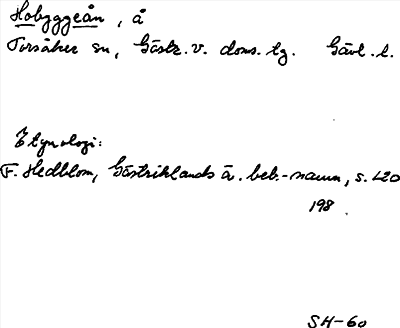 Hobyggeån, å
Torsåker sn, Gästr. v. doms. tg. Gävl. l.
Etymologi:
F. Hedblom, Gästriklands ä. beb.-namn, s. 120
198.
SH-60